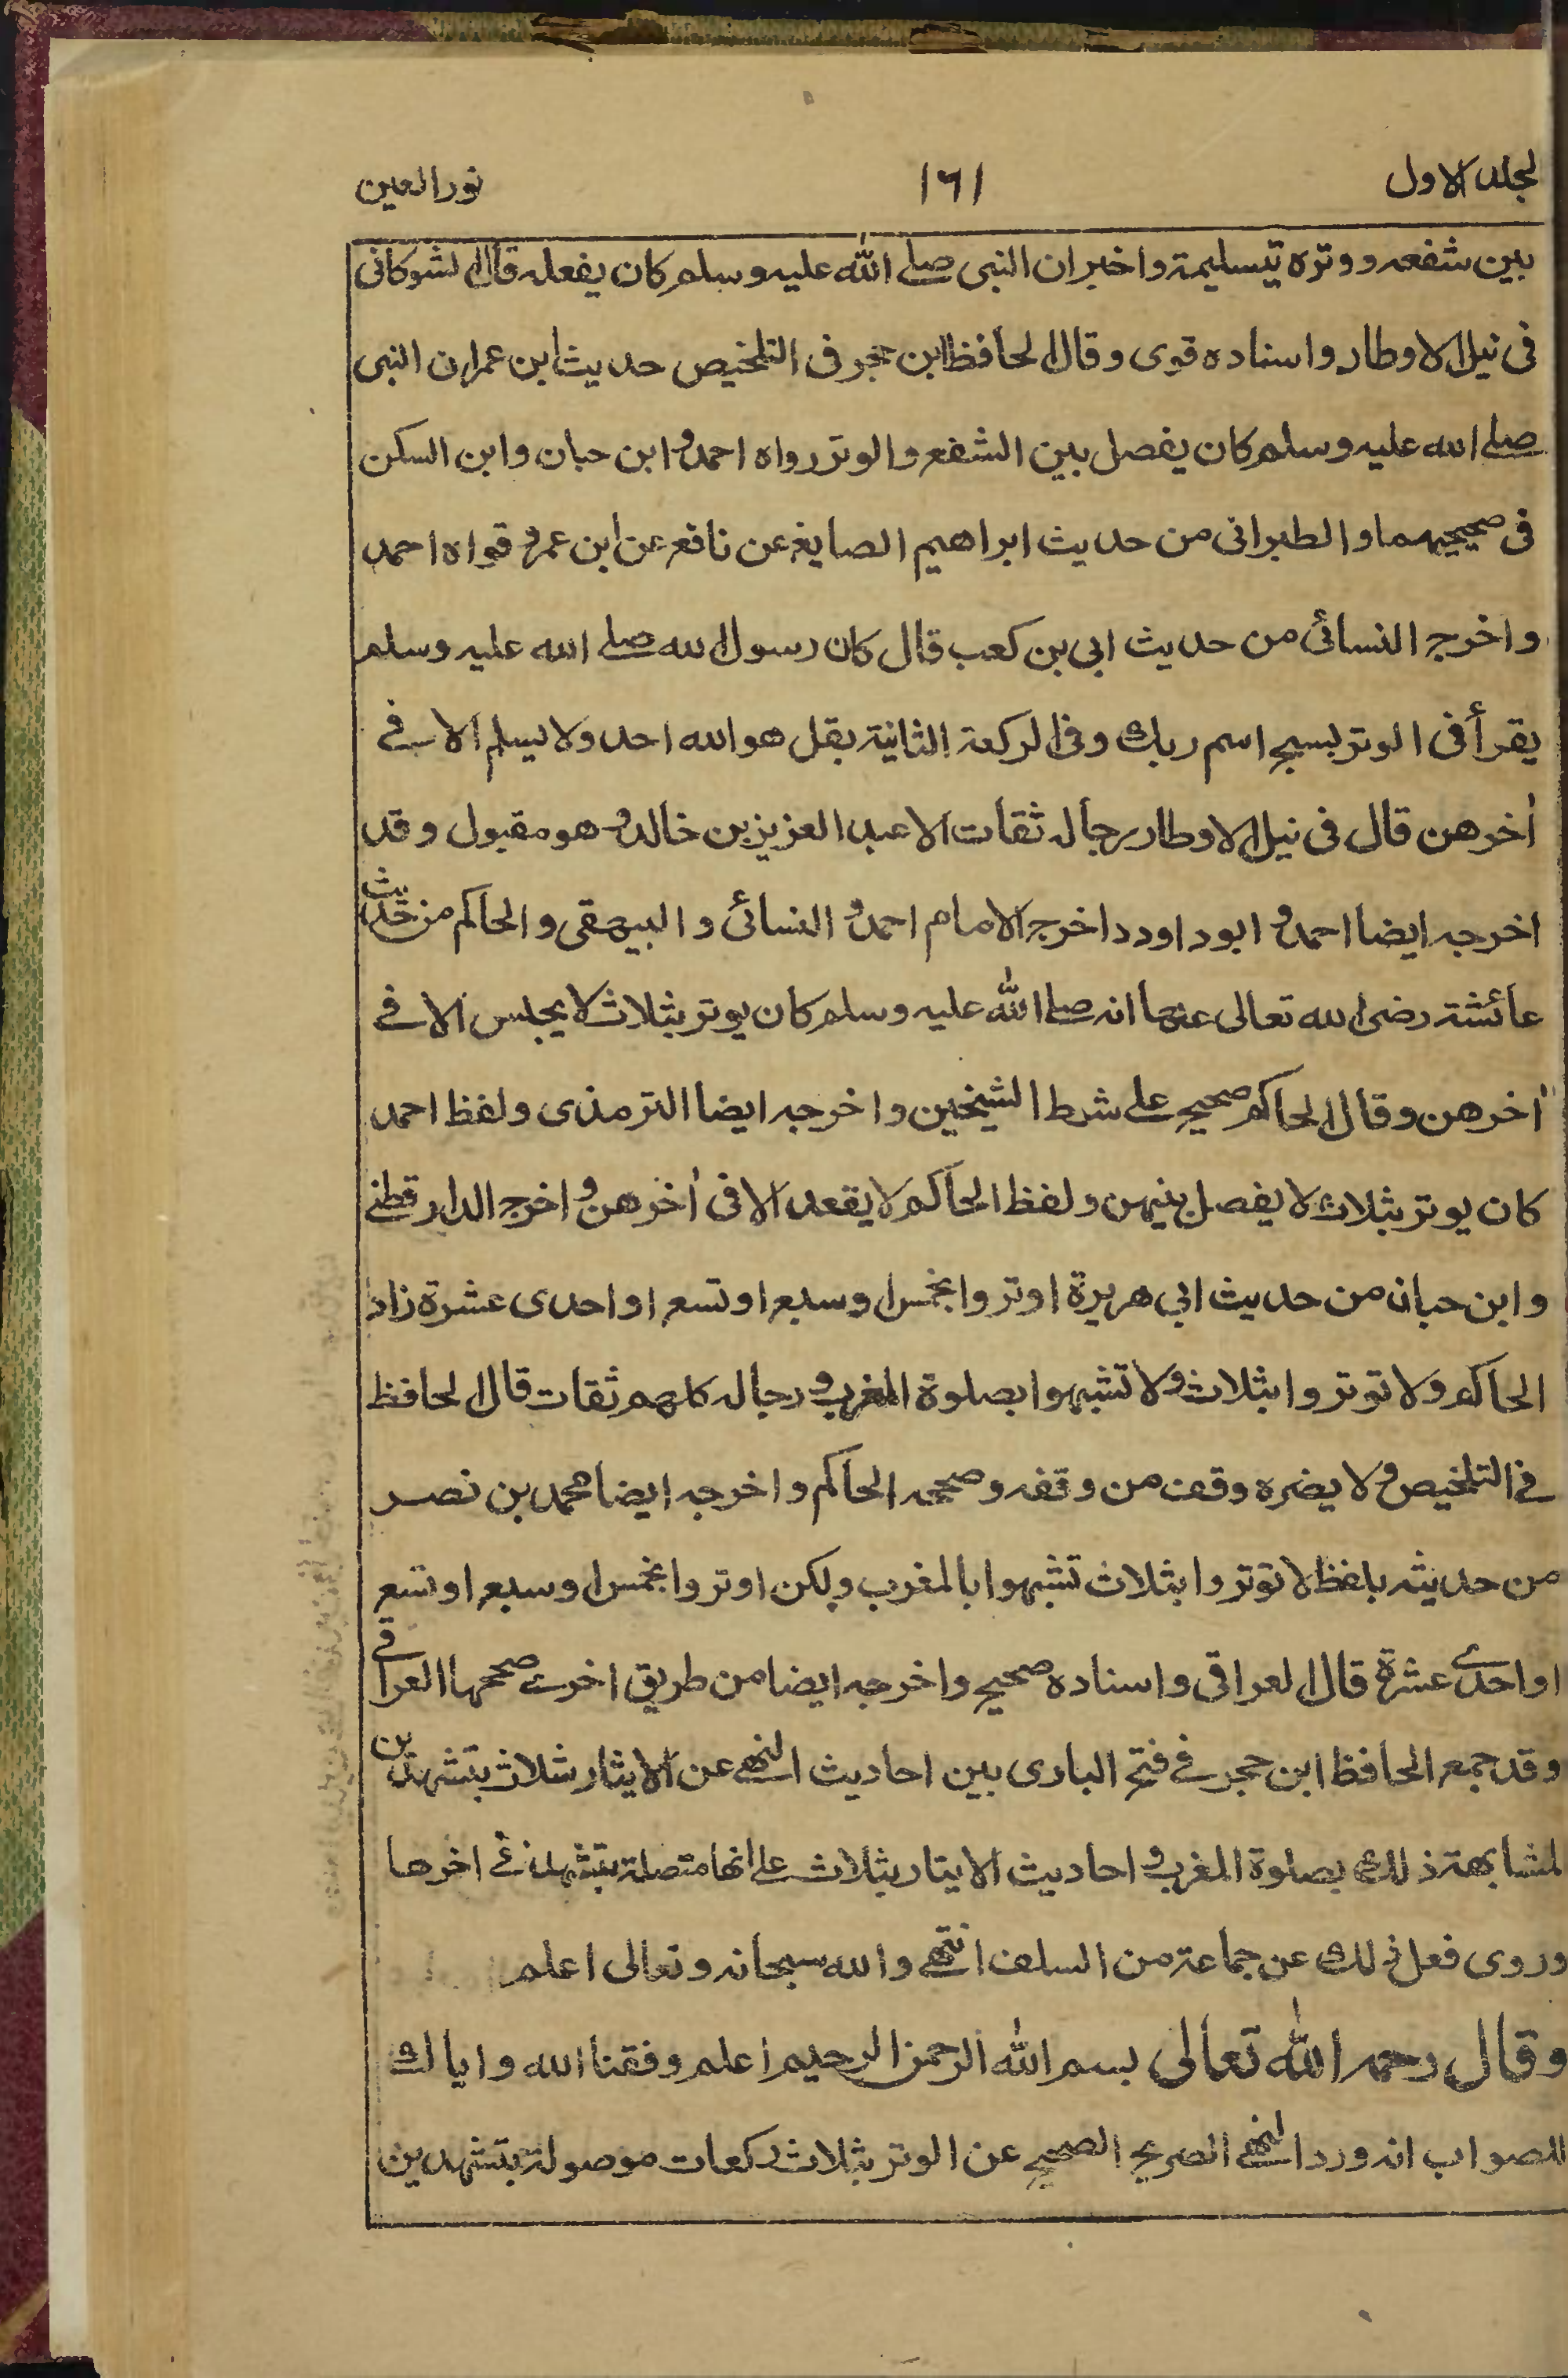 لجلد الاول ١٦١ نور العين
بين شفعه ووتره بتسليمة واخبر ان النبى صلے الله عليه وسلم كان يفعله قال الشوكانى
فى نيل الاوطار واسناده قوى وقال الحافظ ابن حجر فى التلخيص حديث ابن عمر ان النبى
صلے الله عليه وسلم كان يفصل بين الشفع والوتر رواه احمد و ابن حبان وابن السكن
فى صحيحيهما والطبرانى من حديث ابراهيم الصايغ عن نافع عن ابن عمر و قواه احمد
واخرج النسائى من حديث ابى بن كعب قال كان رسول الله صلے الله عليه وسلم
يقرأ فى الوتر بسبح اسم ربك وفى الركعة الثانية بقل هو الله احد ولا يسلم الا فے
أخرهن قال فى نيل الاوطار رجاله ثقات الا عبد العزيز بن خالد و هو مقبول وقد
اخرجه ايضا احمد و ابو داود واخرج الامام احمد و النسائى و البيهقى و الحاكم من حديث
عائشة رضى الله تعالى عنها انه صلے الله عليه وسلم كان يوتر بثلاث لا يجلس الا فے
أخرهن وقال الحاكم صحيح علے شرط الشيخين واخرجه ايضا الترمذى ولفظ احمد
كان يوتر بثلاث لا يفصل بينهن ولفظ الحاكم لا يقعد الا فى أخرهن و اخرج الدارقطنے
وابن حبان من حديث ابي هريرة اوتروا بخمس او سبع او تسع او احدى عشرة زاد
الحاكم ولا توتروا بثلاث ولا تشبهوا بصلوة المغرب و رجاله كلهم ثقات قال الحافظ
فے التلخيص و لا يضره وقف من وقفه وصححه الحاكم واخرجه ايضا محمد بن نصر
من حديثه بلفظ لا توتروا بثلاث تشبهوا بالمغرب ولكن اوتروا بخمس او سبع او تسع
او احدے عشرة قال العراقى واسناده صحيح واخرجه ايضا من طريق اخرے صححها العراقے
وقد جمع الحافظ ابن حجر فے فتح البارى بين احاديث النهے عن الايتار بثلاث بتشهدين
لمشابهة ذلك بصلوة المغرب و احاديث الايتار بثلاث علے انها متصلة بتشهد فے اخرها
وروى فعل ذلك عن جماعة من السلف انتهے والله سبحانه وتعالى اعلم
وقال رحمه الله تعالى بسم الله الرحمن الرحيم اعلم وفقنا الله واياك
للصواب انه ورد النهے الصريح الصحيح عن الوتر بثلاث ركعات موصولة بتشهدين